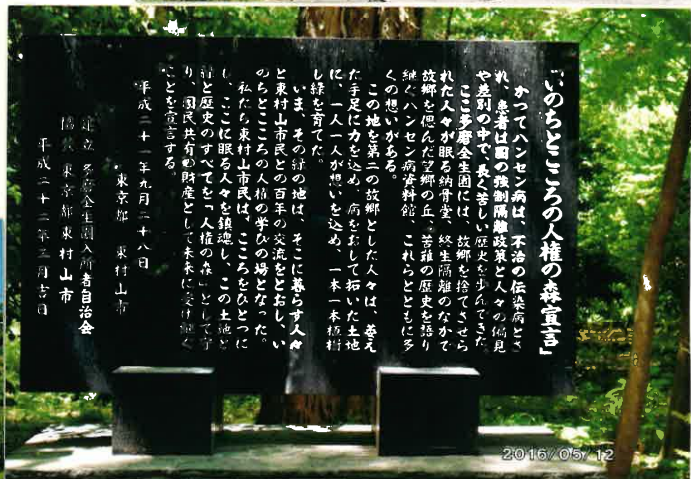 「いのちとこころの人権の森宣言」
かつてハンセン病は、不治の伝染病とさ
れ、患者は国の強制隔離政策と人々の偏見
や差別の中で、長く苦しい歴史を歩んできた。
ここ多磨全生園には、故郷を捨てさせら
れた人々が眠る納骨堂、終生隔離のなかで
故郷を偲んだ望郷の丘、苦難の歴史を語り
継ぐハンセン病資料館、これらとともに多
くの想いがある。
この地を第二の故郷とした人々は、萎え
た手足に力を込め、病をおして拓いた土地
に、一人一人が想いを込め、一本一本植樹
し緑を育てた。
いま、その緑の地は、そこに暮らす人々
と東村山市民との百年の交流をとおし、い
のちとこころの人権の学びの場となった。
私たち東村山市民は、こころをひとつに
し、ここに眠る人々を鎮魂し、この土地と
緑と歴史のすべてを「人権の森」として守
り、国民共有の財産として未来に受け継ぐ
ことを宣言する。
平成二十一年九月二十八日
東京都 東村山市
建立 多磨全生園入所者自治会
協賛 東京都東村山市
平成二十二年三月吉日
2016/05/12